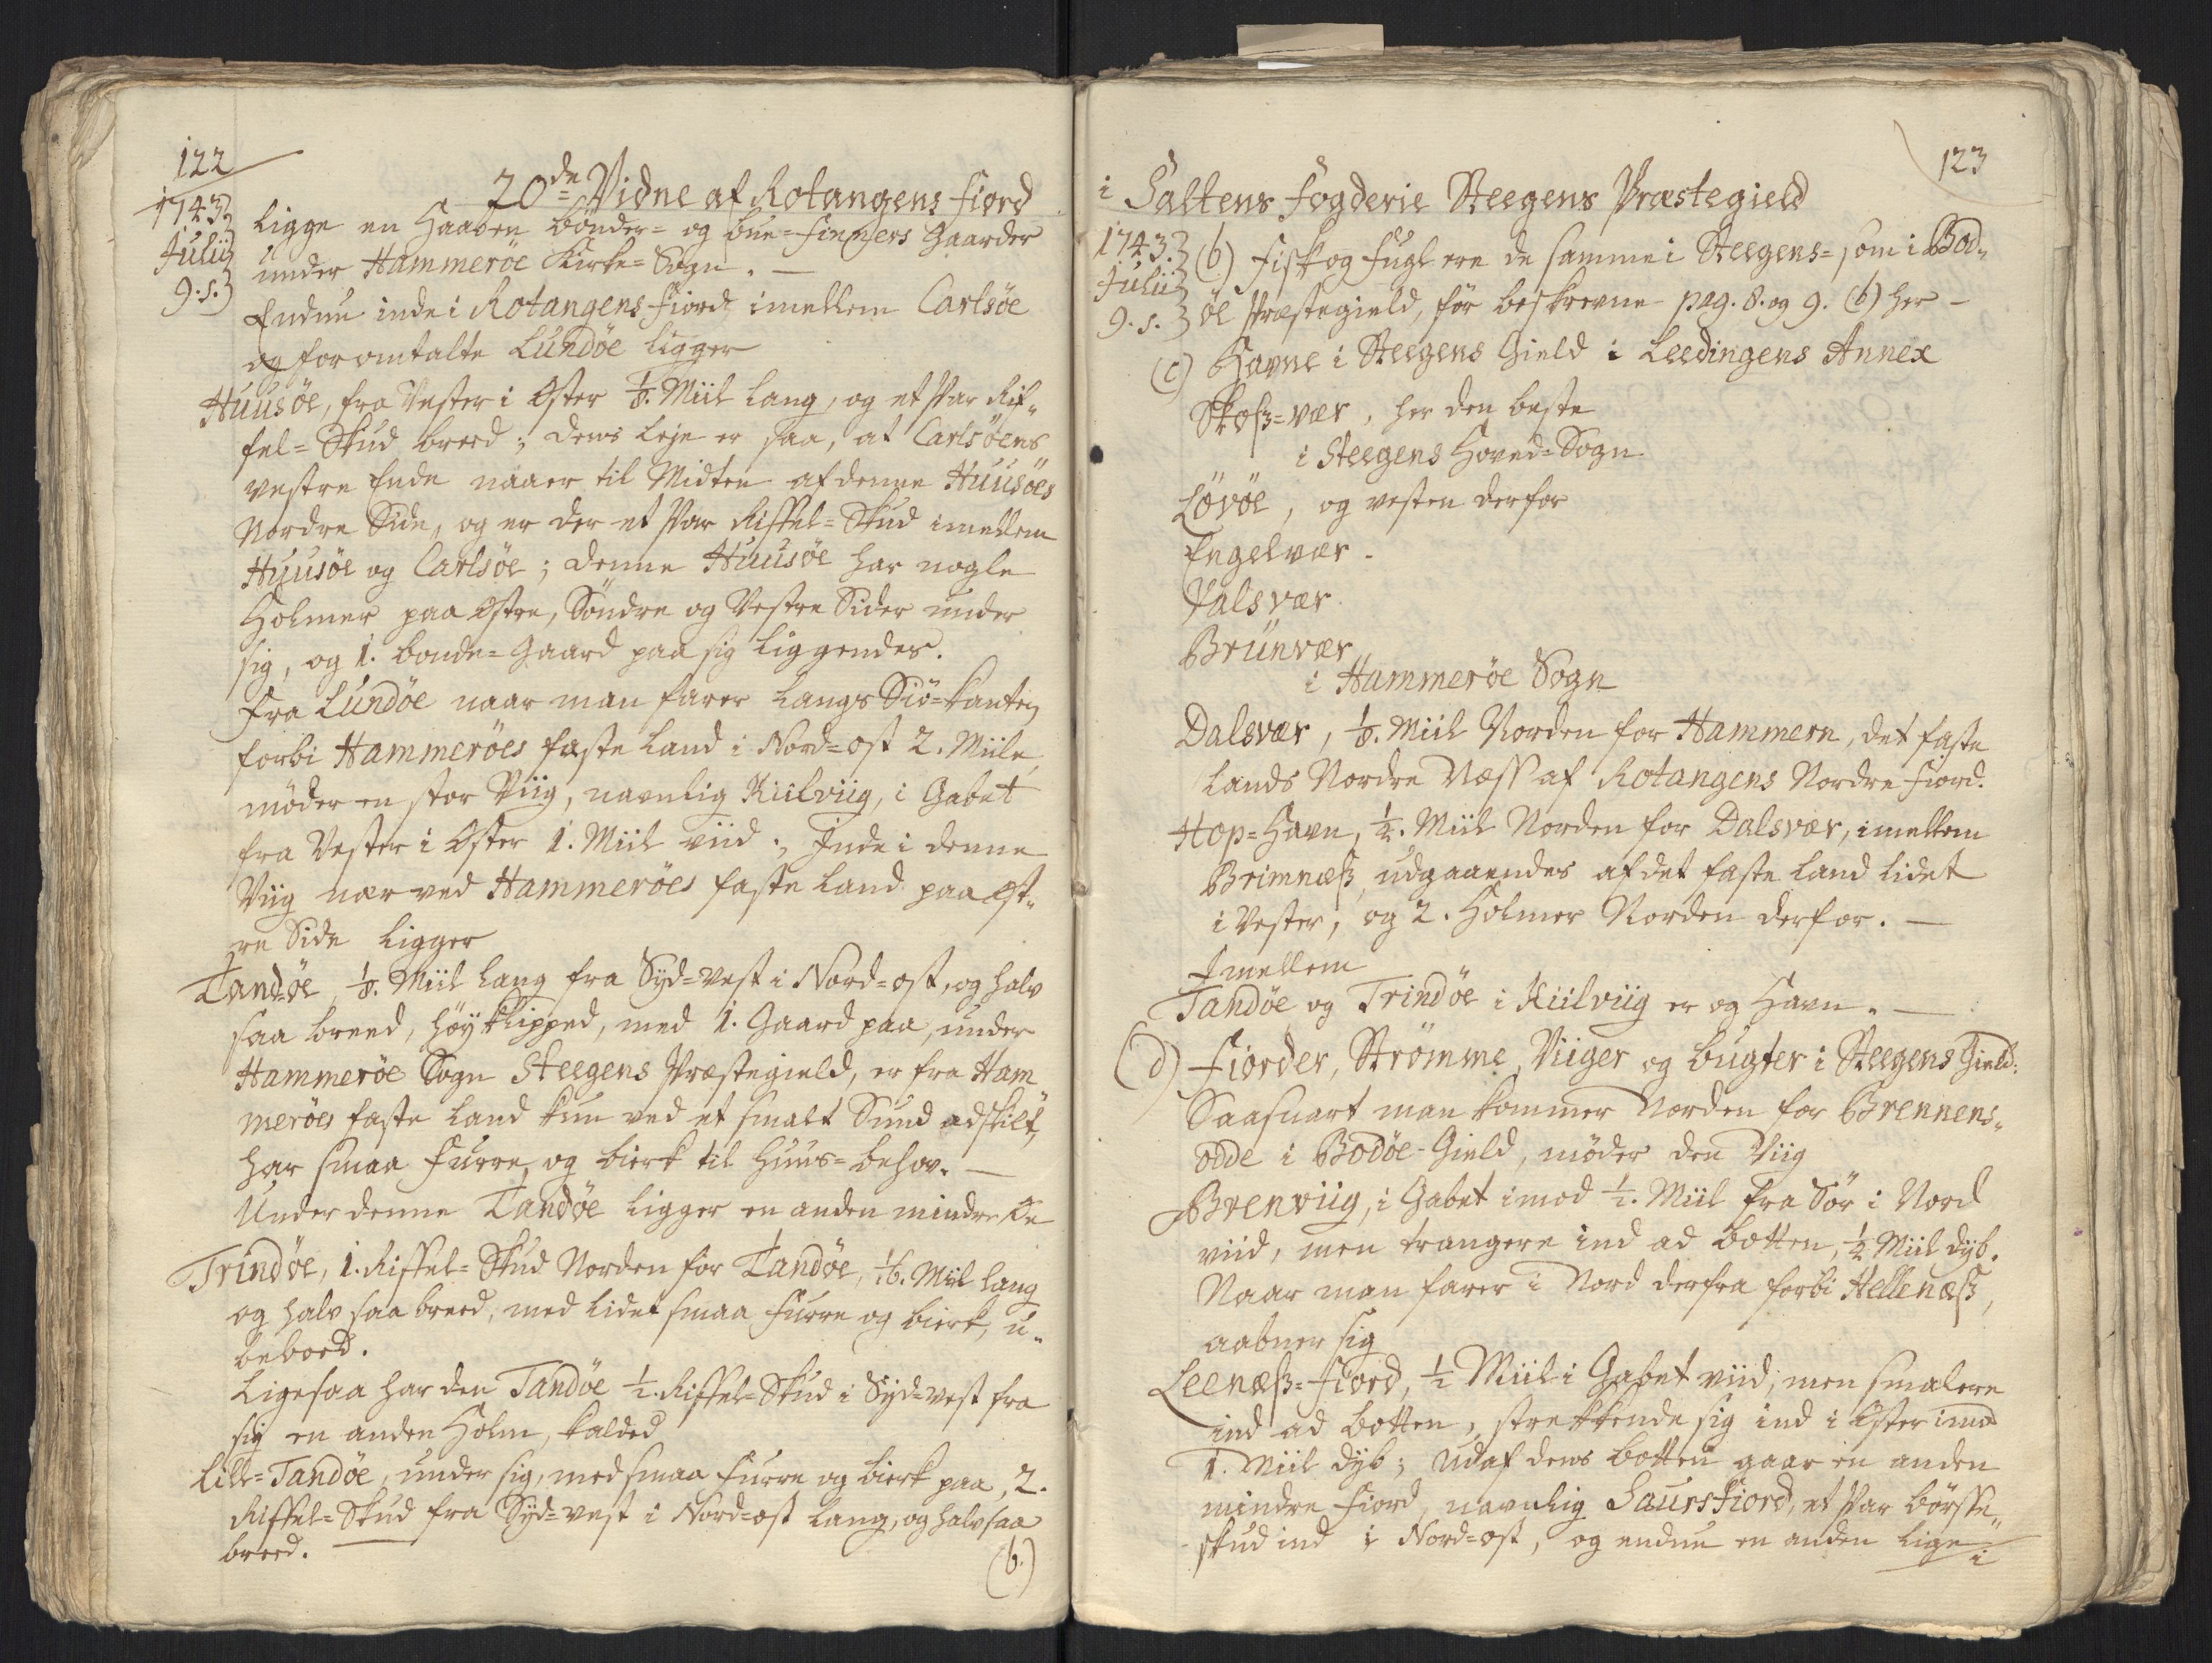 122
20de Vidne af Rotangens Fiord
1743.
Julii
9. s.
ligge en Haaben bönder= og bue=Finners Gaarder
under Hammeröe Kirke=Sogn. —
Endnu inde i Rotangens Fiord, imellem Carlsöe
og foromtalte Lundöe ligger
Huusöe, fra Vester i Öster 1/8. Miil lang, og et Par Rif„
fel=Skud breed; dens Leje er saa, at Carlsöens
vestre Ende naaer til Midten af denne Huusöes
Nordre Side, og er der et Par Riffel=Skud imellem
Huusöe og Carlsöe; denne Huusöe har nogle
Holmer paa Östre, Söndre og Vestre Sider under
sig, og 1. bonde=Gaard paa sig liggendes.
Fra Lundöe naar man farer langs Siö=kanten
forbi Hammeröes faste Land i Nord=ost 2. Miile,
möder en stor Viig, navnlig Kiilviig, i Gabet
fra Vester i Öster 1. Miil viid; Inde i denne
Viig nær ved Hammeröes faste Land paa Öst„
re Side ligger
Tandöe, 1/8. Miil lang fra Syd=vest i Nord=ost, og halv
saa breed, höy klipped, med 1. Gaard paa, under
Hammeröe Sogn Steegens Præstegield, er fra Ham„
meröes faste Land kun ved et smalt Sund adskilt,
har smaa Furre, og bierk til Huus=behov. —
Under denne Tandöe ligger en anden mindre Öe
Trindöe, 1. Riffel=Skud Norden for Tandöe, 1/16. Miil lang
og halv saa breed, med lidet smaa Furre og bierk, u„
beboed.
Ligesaa har den Tandöe 1/2. Riffel=Skud i Syd=vest fra
sig en anden Holm, kalded
Lille=Tandöe, under sig, med smaa Furre og bierk paa, 2.
Riffel=Skud fra Syd=vest i Nord=ost lang, og halv saa
breed. —
(b.)
123
i Saltens Fogderie Steegens Præstegield
1743.
Julii
9. s.
(b) Fisk og Fugl ere de samme i Steegens= som i Bod„
öe Præstegield, för beskrevne pag. 8. og 9. (b) her —
(c) Havne i Steegens Gield i Leedingens Annex
Skoß=vær, her den beste
i Steegens Hoved=Sogn
Lövöe, og vesten derfor
Engelvær.
Valsvær
Brünvær
i Hammeröe Sogn
Dalsvær, 1/8. Miil Norden for Hammern, det faste
Lands Nordre Næss af Rotangens Nordre Fiord.
Hop=Havn, 1/2. Miil Norden for Dalsvær, imellem
Brimnæß, udgaaendes af det faste Land lidet
i Vester, og 2. Holmer Norden derfor. —
Imellem
Tandöe og Trindöe i Kiilviig er og Havn. —
(d) Fiorder, Strömme, Viiger og bugter i Steegens Gield.
Saasnart man kommer Norden for Brennens„
odde i Bodöe-Gield, möder den Viig
Brenviig, i Gabet imod 1/2. Miil fra Sör i Nord
viid, men trangere ind ad botten, 1/2 Miil dyb.
Naar man farer i Nord derfra forbi Hellenæß,
aabner sig
Leenæß=Fiord, 1/2 Miil i Gabet viid, men smalere
ind ad botten, strekkende sig ind i Öster imod
1. Miil dyb; udaf dens botten gaar en anden
mindre Fiord, navnlig Saursfiord, et Par börsse„
skud ind i Nord=ost, og endnu en anden lige
i